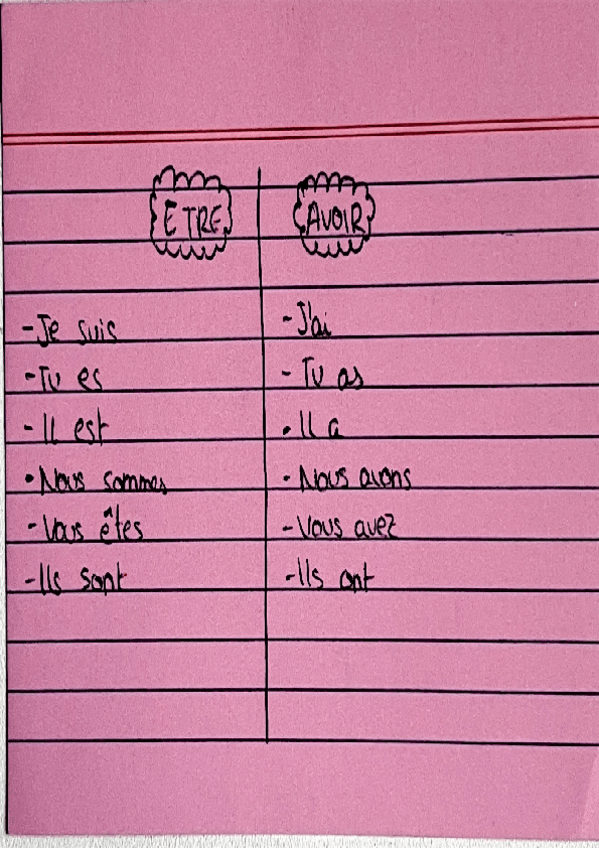 ETRE AVOIR
-Je suis -J'ai
-Tu es - Tu as
-Il est -Il a
-Nous sommes - Nous avons
-Vous êtes -Vous avez
-Ils sont -Ils ont